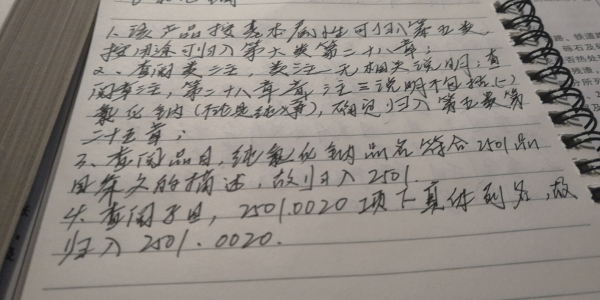 1. 该产品按基本属性可归入第五类,
按用途可归入第六类第二十八章;
2、查阅类注,类注无相关说明;查
阅章注,第二十八章章注三说明不包括(一)
氯化钠(不论是否纯净),确定归入第五类第
二十五章;
3、查阅品目,纯氯化钠品名符合2501品
目条文的描述,故归入2501.
4、查阅子目,2501.0020项下具体列名,故
归入2501.0020.